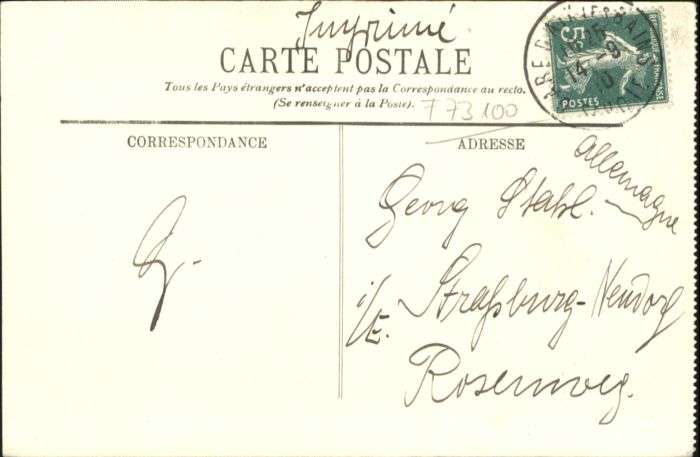 Imprimé
CARTE POSTALE
Tous les Pays étrangers n'acceptent pas la Correspondance au recto.
(Se renseigner à la Poste).
F 73100
CORRESPONDANCE
ADRESSE
Allemagne
Georg Stahl.
i/E. Straßburg-Neudorf
Rosenweg.
5c
POSTES
14-9